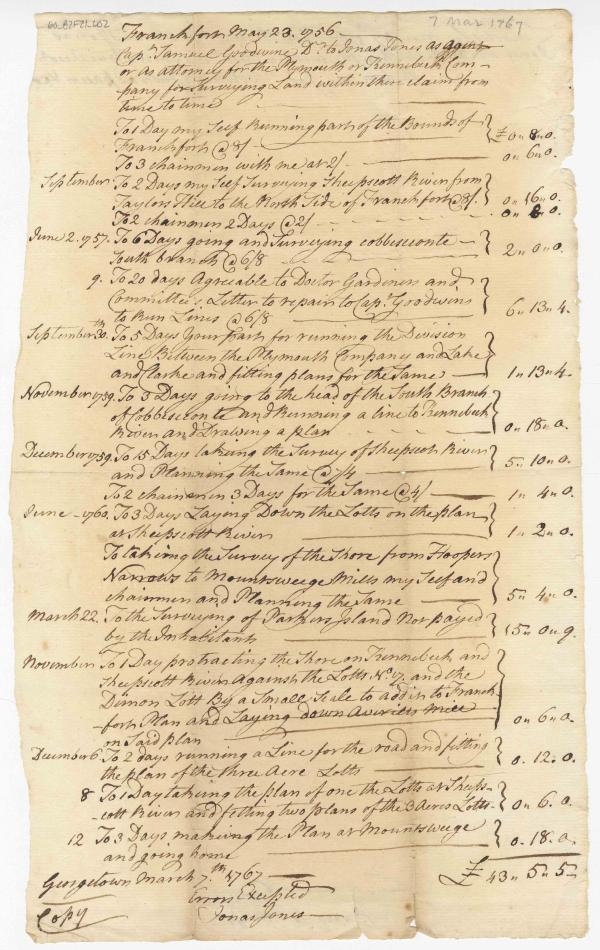 60_B2F21_602
7 Mar 1767
Franckfort May 23. 1756
Cap.t Samuel Goodwine D.r to Jonas Jones as agent
or as attorney for the Plymouth or Kennebeck Com-
pany for Surveying Land within there claim from
time to time
To 1 Day my Self Running part of the Bounds of
Franckfort @ 8/ £ 0 „ 8 „ 0.
To 3 chainmen with me at 2/ 0 „ 6 „ 0.
September To 2 Days my Self Surveying Sheepscott River from
Taylors Hill to the North Side of Franckfort @ 8/ 0 „ 16 „ 0.
To 2 chainmen 2 Days @ 2/ 0 „ 8 „ 0.
June 2. 1757. To 6 Days going and Surveying cobbeseconte
South branch @ 6/8 2 „ 0 „ 0.
9. To 20 days Agreeable to Doctor Gardiners and
Committee's Letter to repair to Cap.t Goodwins
to Run Lines @ 6/8 6 „ 13 „ 4.
September 30.th To 5 Days Your part for running the Division
Line Between the Plymouth Company and Lake
and Clarke and fitting plans for the Same 1 „ 13 „ 4.
November 1759. To 3 Days going to the head of the South Branch
of Cobbeseconte and Running a line to Kennebeck
River and Drawing a plan 0 „ 18 „ 0.
December 1759. To 15 Days taking the Survey of Sheepscott River
and Planning the Same @ 7/4 5 „ 10 „ 0.
To 2 chainmen 3 Days for the Same @ 4/ 1 „ 4 „ 0.
June 1760. To 3 Days Laying Down the Lotts on the plan
at Sheepscott River 1 „ 2 „ 0.
To taking the Survey of the Shore from Hoopers
Narrows to Mountsweege Mills my Self and
chainmen and Planning the Same 5 „ 4 „ 0.
March 22. To the Surveying of Parkers Island Not payed
by the Inhabitants 15 „ 0 „ 9.
November To 1 Day protracting the Shore on Kennebeck and
Sheepscott River Against the Lotts No. 17. and the
Dimon Lott By a Small Scale to add in to Franck-
fort Plan and Laying down Averills Mill
on Said plan 0 „ 6 „ 0.
December 6. To 2 days running a Line for the road and fitting
the plan of the three Acre Lotts 0. 12. 0.
8 To 1 Day taking the plan of one the Lotts at Sheeps-
-cott River and fitting two plans of the 3 Acres Lotts 0 „ 6. 0.
12 To 3 Days making the Plan at Mountsweege
and going home 0. 18. 0.
£ 43 „ 5 „ 5
Georgetown March 7.th 1767
Errors Excepted
Copy Jonas Jones